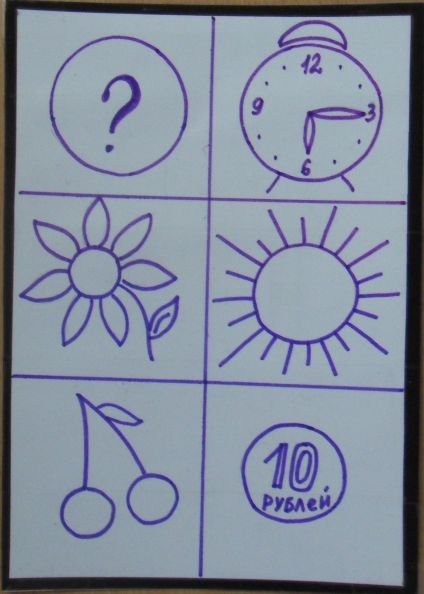 ?
12
9
3
6
10
рублей